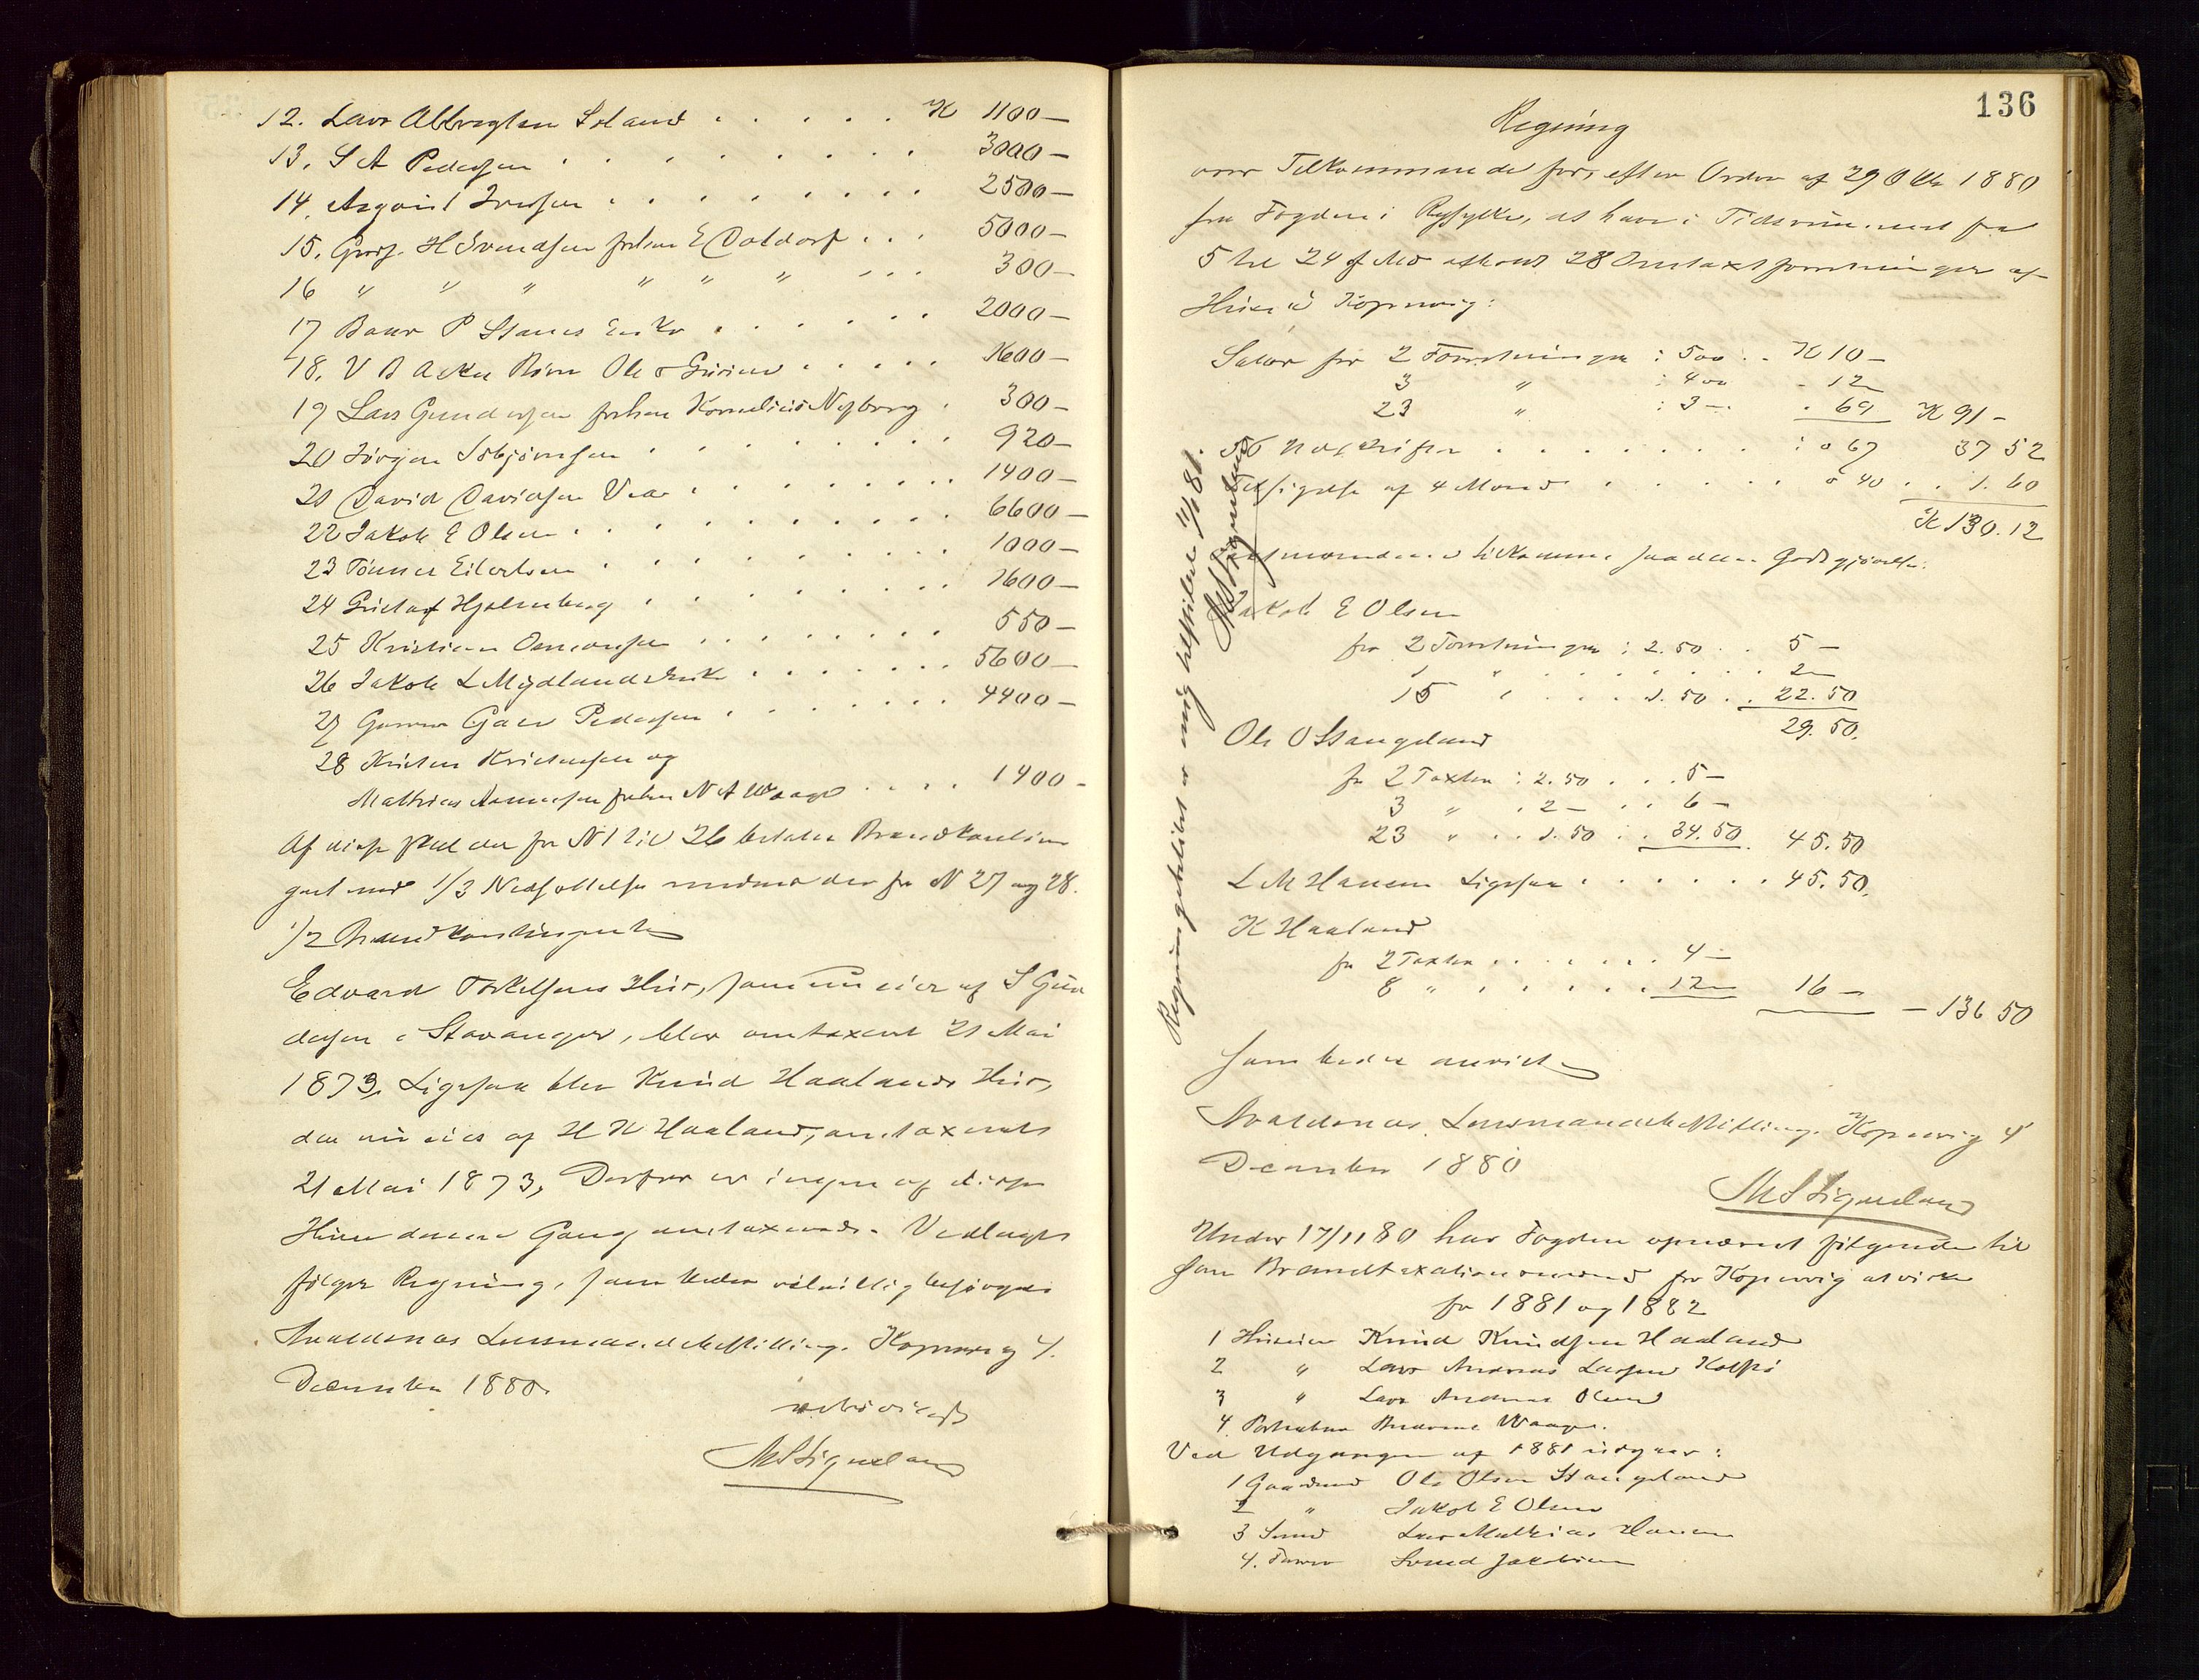 12. Lars Albregtsen Soland . . . . . K 1100 —
13. S A Pedersen . . . . . . . . 3000 —
14. Asgout Iversen . . . . . . . . 2500 —
15. Gods. H Svendsen forhen E Doldorf . . . 5000 —
16 " " " " " " - - - 300 —
17 Baar P Stanes Enke . . . . . . 2000 —
18. V B Børn Ole & Gurine . . . . . 1600 —
19 Lars Gundersen forhen Kornelius Nyborg . 300 —
20 Jørgen Isbjørnsen . . . . . . . 920 —
21 David Davidsen Vea . . . . . . . 1400 —
22 Jakob E Olsen . . . . . . . . 6600 —
23 Tønnes Eilertsen . . . . . . . 1000 —
24 Gustaf Hjelmberg . . . . . . . 1600 —
25 Kristian Osmonsen . . . . . . . 550 —
26 Jakob L Mydlands Enke . . . . . . 5600 —
27 Gunner Gaer Pedersen . . . . . . 4400 —
28 Kristen Kristensen og
Mathias Aanensen forhen N A Waage . . . . 1400 -
Af disse skal der for N 1 til 26 betales Brandkontin
gent med 1/3 Nedsættelse medens der for N 27 og 28.
1/2 Brandkontingent
Edvard Torkelsens Huus, som nu eies af S Gun
dersen i Stavanger, blev omtaxeret 21 Mai
1873. Ligesaa blev Knud Haalands Huus,
der nu eies af H K Haaland, omtaxeret
21 Mai 1873, Derfor er ingen af disse
Huse denne Gang omtaxerede. Vedlagt
følger Regning, som bedes velvillig besørget
Avaldsnes Lensmandsbestilling. Kopervig 4.
December 1880.
ærbødigst
M S Liqueland
136
Regning
over Tilkommende for, efter Ordre af 29 Okt 1880
fra Fogden i Ryfylke, at have i Tidsrummet fra
5 til 24 f Md afholdt 28 Omtaxtforretninger af
Huse i Kopervig:
Salær for 2 Forretninger : 500 . . K 10 —
3 " : 400 - 12
23 " : 3 — . 69 K 91 —
56 Udskrifter . . . . . . . . : o 67 37 52
Tilsigelse af 4 Mænd . . . . . o 40 . . 1. 60
K 130.12
tilkommer saadan Godtgjørelse:
Jakob E Olsen
for 2 Forretninger : 2.50 . . 5 —
1 " . . . . . . 2 —
15 " . . . 1.50 . . 22.50
29.50.
Ole O Stangeland
for 2 Taxter : 2.50 . . . 5 —
3 " . 2 — . . 6 —
23 " . . 1.50 . . 34.50. 45.50
L M Hansen Ligesaa . . . . . . 45.50.
K Haaland
for 2 Taxter . . . . . . 4 —
8 " . . . . . . 12 — 16 — — 136 50
som bedes anvist
Avaldsnes Lensmandsbestilling. Kopervig 4
December 1880
M S Liqueland
Under 17/11 80 har Fogden opnævnt følgende til
som Brandtaxationsmænd for Kopervig at virke
for 1881 og 1882
1 Huseier Knud Knudsen Haaland
2 " Lars Andreas Larsen
3 " Lars Andreas Olsen
4. Andreas Waage.
Ved Udgangen af 1881 udgaar:
1 Gaardmd Ole Olsen Stangeland
2 " Jakob E Olsen
3 Smed Lars Mathias Hansen
4. Farver Svend Jakobsen
Regningsbeløbet er mig tilstillet 11/1 81.
M S Liqueland